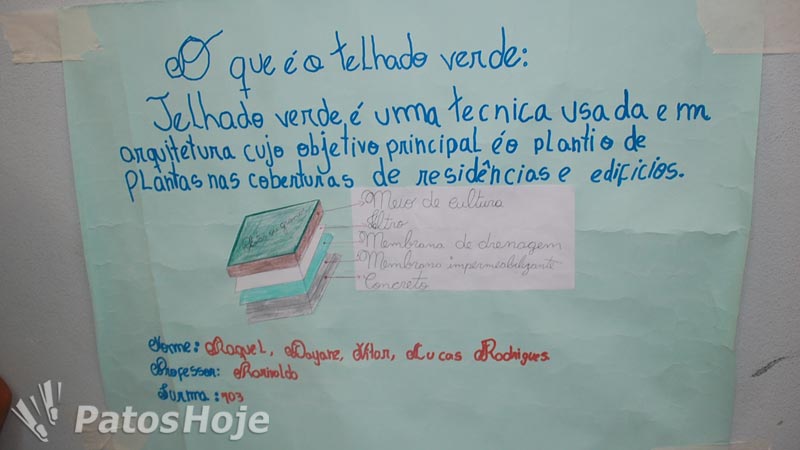 O que é o telhado verde:
Telhado verde é uma tecnica usada em
arquitetura cujo objetivo principal é o plantio de
plantas nas coberturas de residências e edificios.
Meio de cultura
filtro
Membrana de drenagem
Membrana impermeabilizante
Concreto
Nome: Raquel, Dayane, Lucas Rodrigues
Professor: Ronaldo
Turma: 703
PatosHoje